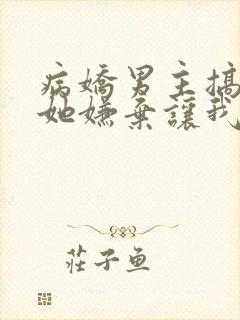 病嬌男主搞
她嫌棄讓我
莊子魚